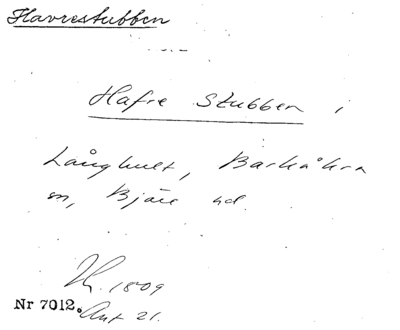 Havrestubben
Hafre Stubben i
Långhult, Barkåkra
sn, Bjäre hd.
1809
Nr 7012. Ant 21.